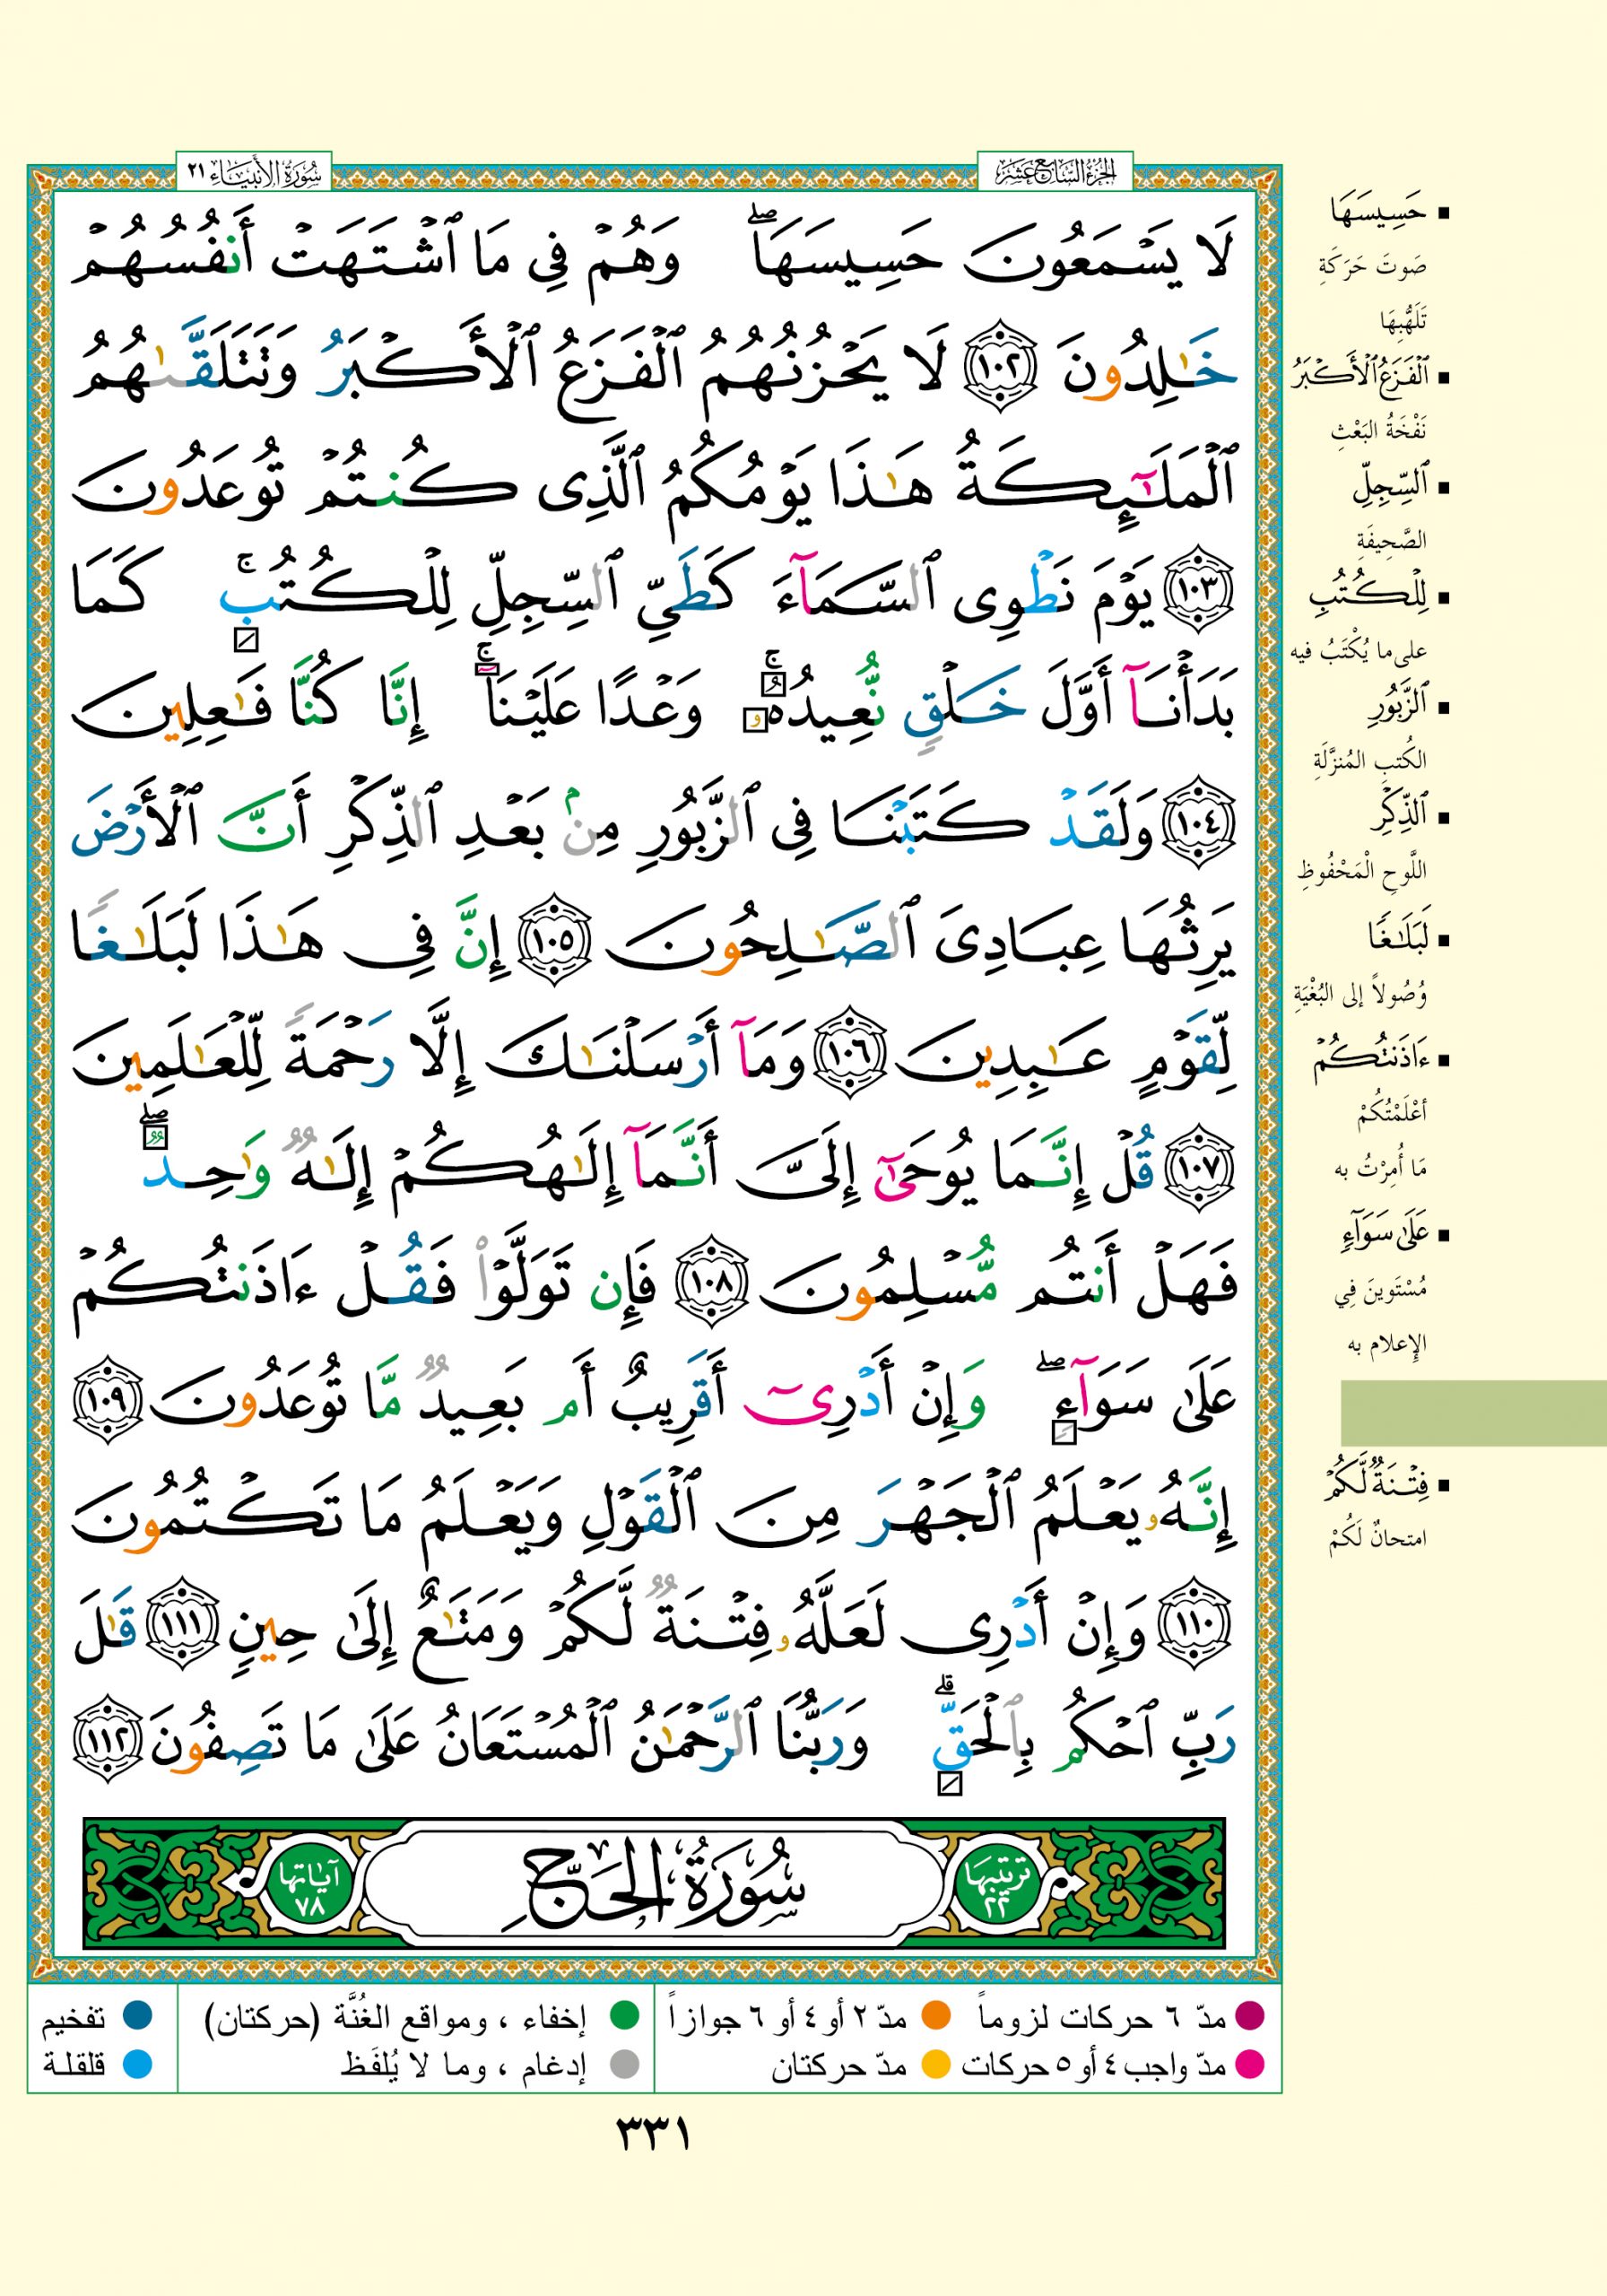 الجزء السابع عشر
سورة الأنبياء ٢١
لَا يَسْمَعُونَ حَسِيسَهَا ۖ وَهُمْ فِى مَا ٱشْتَهَتْ أَنفُسُهُمْ
خَـٰلِدُونَ ١٠٢ لَا يَحْزُنُهُمُ ٱلْفَزَعُ ٱلْأَكْبَرُ وَتَتَلَقَّىٰهُمُ
ٱلْمَلَـٰٓئِكَةُ هَـٰذَا يَوْمُكُمُ ٱلَّذِى كُنتُمْ تُوعَدُونَ
١٠٣ يَوْمَ نَطْوِى ٱلسَّمَآءَ كَطَىِّ ٱلسِّجِلِّ لِلْكُتُبِ ۚ كَمَا
بَدَأْنَآ أَوَّلَ خَلْقٍ نُّعِيدُهُۥ ۚ وَعْدًا عَلَيْنَآ ۚ إِنَّا كُنَّا فَـٰعِلِينَ
١٠٤ وَلَقَدْ كَتَبْنَا فِى ٱلزَّبُورِ مِنۢ بَعْدِ ٱلذِّكْرِ أَنَّ ٱلْأَرْضَ
يَرِثُهَا عِبَادِىَ ٱلصَّـٰلِحُونَ ١٠٥ إِنَّ فِى هَـٰذَا لَبَلَـٰغًا
لِّقَوْمٍ عَـٰبِدِينَ ١٠٦ وَمَآ أَرْسَلْنَـٰكَ إِلَّا رَحْمَةً لِّلْعَـٰلَمِينَ
١٠٧ قُلْ إِنَّمَا يُوحَىٰٓ إِلَىَّ أَنَّمَآ إِلَـٰهُكُمْ إِلَـٰهٌ وَٰحِدٌ ۖ
فَهَلْ أَنتُم مُّسْلِمُونَ ١٠٨ فَإِن تَوَلَّوْا۟ فَقُلْ ءَاذَنتُكُمْ
عَلَىٰ سَوَآءٍ ۖ وَإِنْ أَدْرِىٓ أَقَرِيبٌ أَم بَعِيدٌ مَّا تُوعَدُونَ ١٠٩
إِنَّهُۥ يَعْلَمُ ٱلْجَهْرَ مِنَ ٱلْقَوْلِ وَيَعْلَمُ مَا تَكْتُمُونَ
١١٠ وَإِنْ أَدْرِى لَعَلَّهُۥ فِتْنَةٌ لَّكُمْ وَمَتَـٰعٌ إِلَىٰ حِينٍ ١١١ قَـٰلَ
رَبِّ ٱحْكُم بِٱلْحَقِّ ۗ وَرَبُّنَا ٱلرَّحْمَـٰنُ ٱلْمُسْتَعَانُ عَلَىٰ مَا تَصِفُونَ ١١٢
ترتيبها ٢٢ سُورَةُ الحَجِّ آياتها ٧٨
حَسِيسَهَا
صَوتَ حَرَكَةِ
تَلَهُّبِهَا
ٱلْفَزَعُ ٱلْأَكْبَرُ
نَفْخَةُ البَعْثِ
ٱلسِّجِلِّ
الصَّحِيفَةِ
لِلْكُتُبِ
على ما يُكْتَبُ فيه
ٱلزَّبُورِ
الكُتبِ المُنزَّلَةِ
ٱلذِّكْرِ
اللَّوحِ الْمَحْفُوظِ
لَبَلَـٰغًا
وُصُولاً إلى البُغْيَةِ
ءَاذَنتُكُمْ
أعْلَمْتُكُمْ
مَا أُمِرْتُ به
عَلَىٰ سَوَآءٍ
مُسْتَوينَ فِي
الإعلام به
فِتْنَةٌ لَّكُمْ
امتحانٌ لَكُمْ
مدّ ٦ حركات لزوماً مدّ ٢ أو ٤ أو ٦ جوازاً إخفاء ، ومواقع الغُنَّة (حركتان) تفخيم
مدّ واجب ٤ أو ٥ حركات مدّ حركتان إدغام ، وما لا يُلفَظ قلقلة
٣٣١